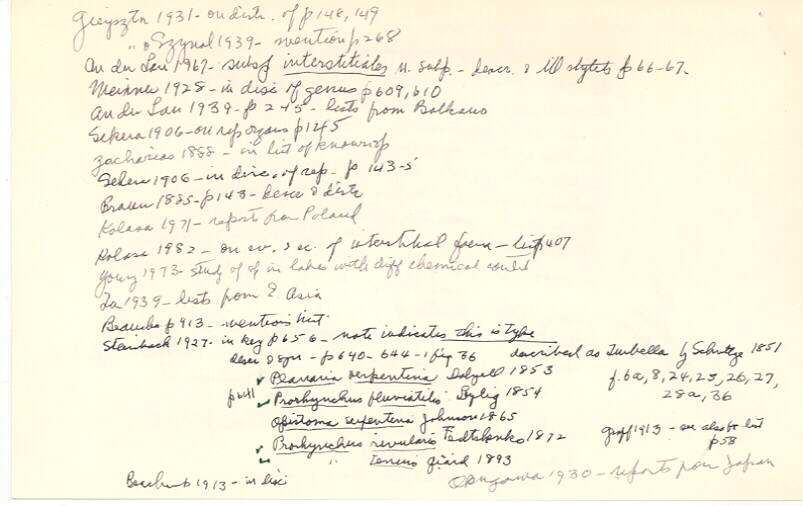 Gieysztor 1931 - on distr. of p 148, 149
" & Szynal 1939 - mention p 268
An der Lan 1967 - subsp interstitialis n. subsp. - descr. & ill stylets p 66-67.
Meixner 1928 - in disc of genus p 609, 610
An der Lan 1939 - p 245 - lists from Balkans
Sekera 1906 - on rep organs p 145
Zacharias 1888 - in list of known sp
Sekera 1906 - in disc. of rep. p 143-5
Braun 1885 - p 143 - descr & distr
Kolasa 1971 - reports from Poland
Kolasa 1982 - on ev. & ec. of interstitial fauna - list p 407
Young 1973 - study of sp in lakes with diff chemical condit
1939 - lists from E. Asia
Beauchp 913 - mentions
Steinbock 1927 - in key p 656 - note indicates this is type
descr & syn - p 640 - 644 - 1 fig 36 described as Turbella by Schultze 1851
✓ Planaria serpentina Dalyell 1853 f. 6a, 8, 24, 25, 26, 27,
p 641 ✓ Prorhynchus fluviatilis Leydig 1854 28a, 36
Opistoma serpentina Johnson 1865
✓ Prorhynchus rivularis Fedtschenko 1872 Graff 1913 - on list
✓ " tenuis Giard 1893 p 58
Beauchamp 1913 - in disc Okugawa 1930 - reports from Japan